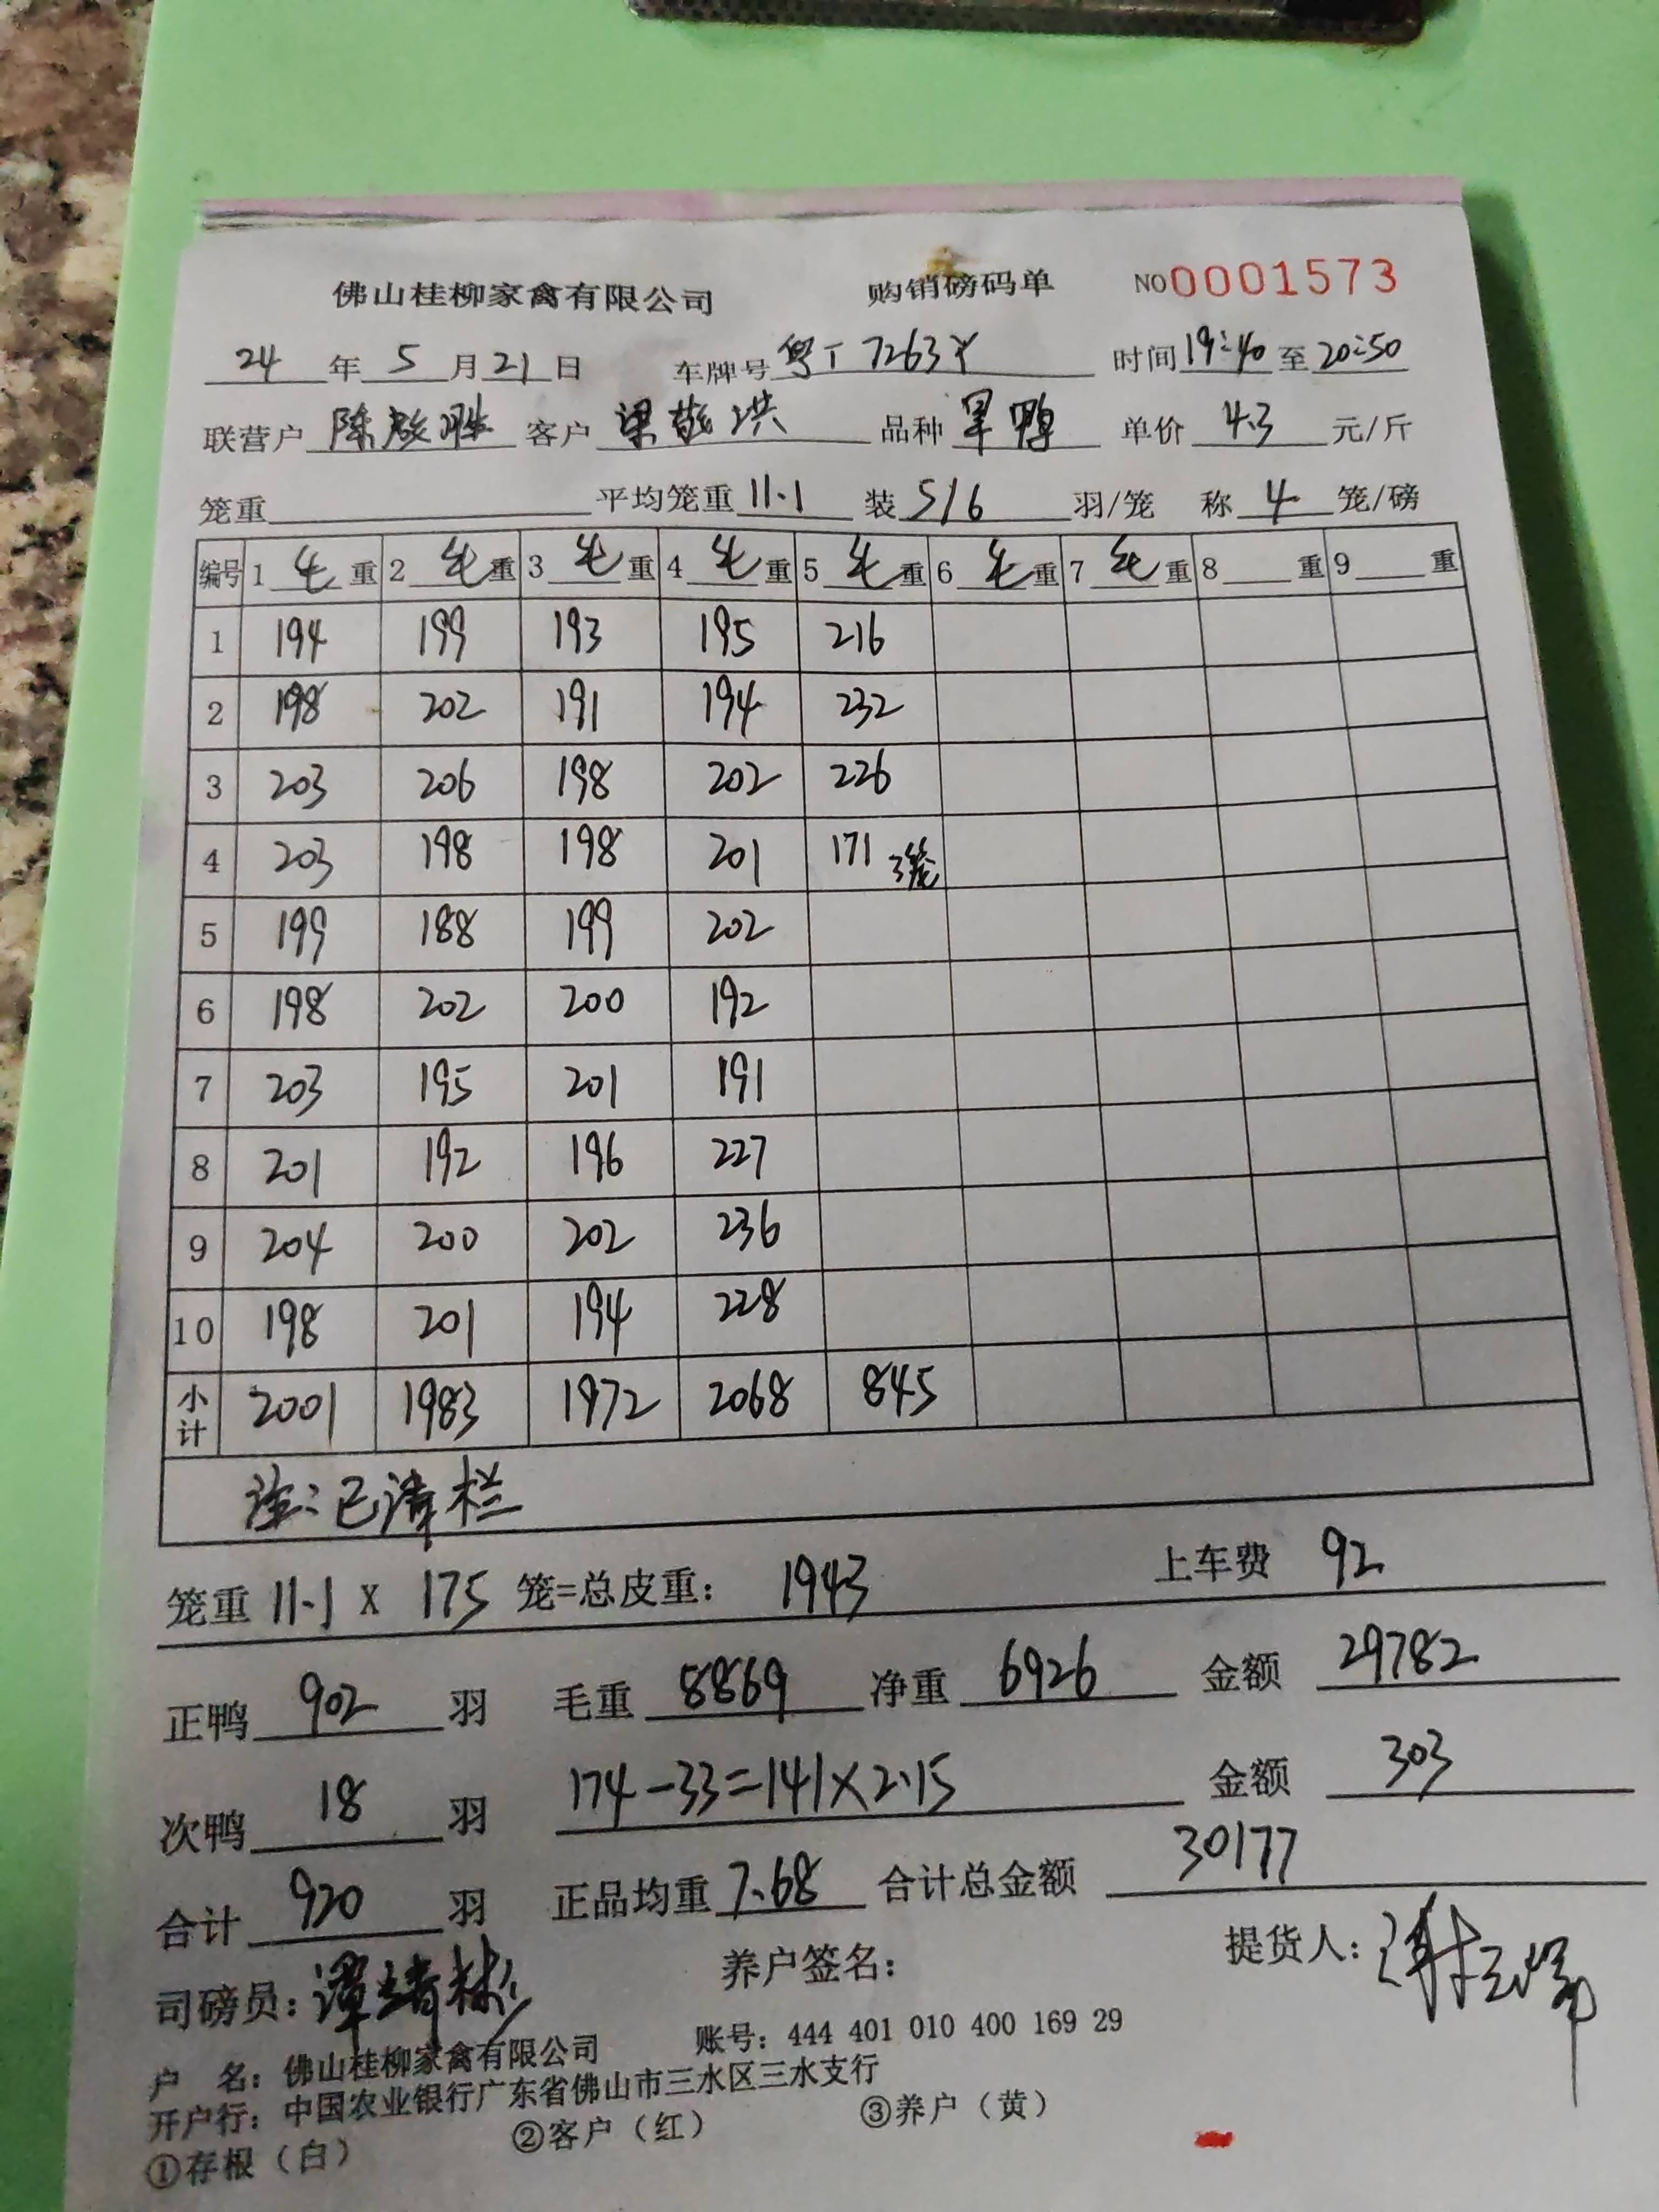 佛山桂柳家禽有限公司 购销磅码单 NO0001573
24年5月21日 车牌号粤T 7263Y 时间19:40至20:50
联营户 陈 胜 客户 梁 洪 品种 旱鸭 单价 4.3 元/斤
笼重 平均笼重 11.1 装 5/6 羽/笼 称 4 笼/磅
编号 1 毛 重 2 毛 重 3 毛 重 4 毛 重 5 毛 重 6 毛 重 7 毛 重 8 重 9 重
1 194 199 193 195 216
2 198 202 191 194 232
3 203 206 198 202 226
4 203 198 198 201 171 3笼
5 199 188 199 202
6 198 202 200 192
7 203 195 201 191
8 201 192 196 227
9 204 200 202 236
10 198 201 194 228
小计 2001 1983 1972 2068 845
注:已清栏
笼重 11.1 X 175 笼=总皮重: 1943 上车费 92
正鸭 902 羽 毛重 8869 净重 6926 金额 29782
次鸭 18 羽 174-33=141×2.15 金额 303
合计 920 羽 正品均重 7.68 合计总金额 30177
司磅员:谭靖彬 养户签名: 提货人:
户 名:佛山桂柳家禽有限公司 账号:444 401 010 400 169 29
开户行:中国农业银行广东省佛山市三水区三水支行
①存根(白) ②客户(红) ③养户(黄)